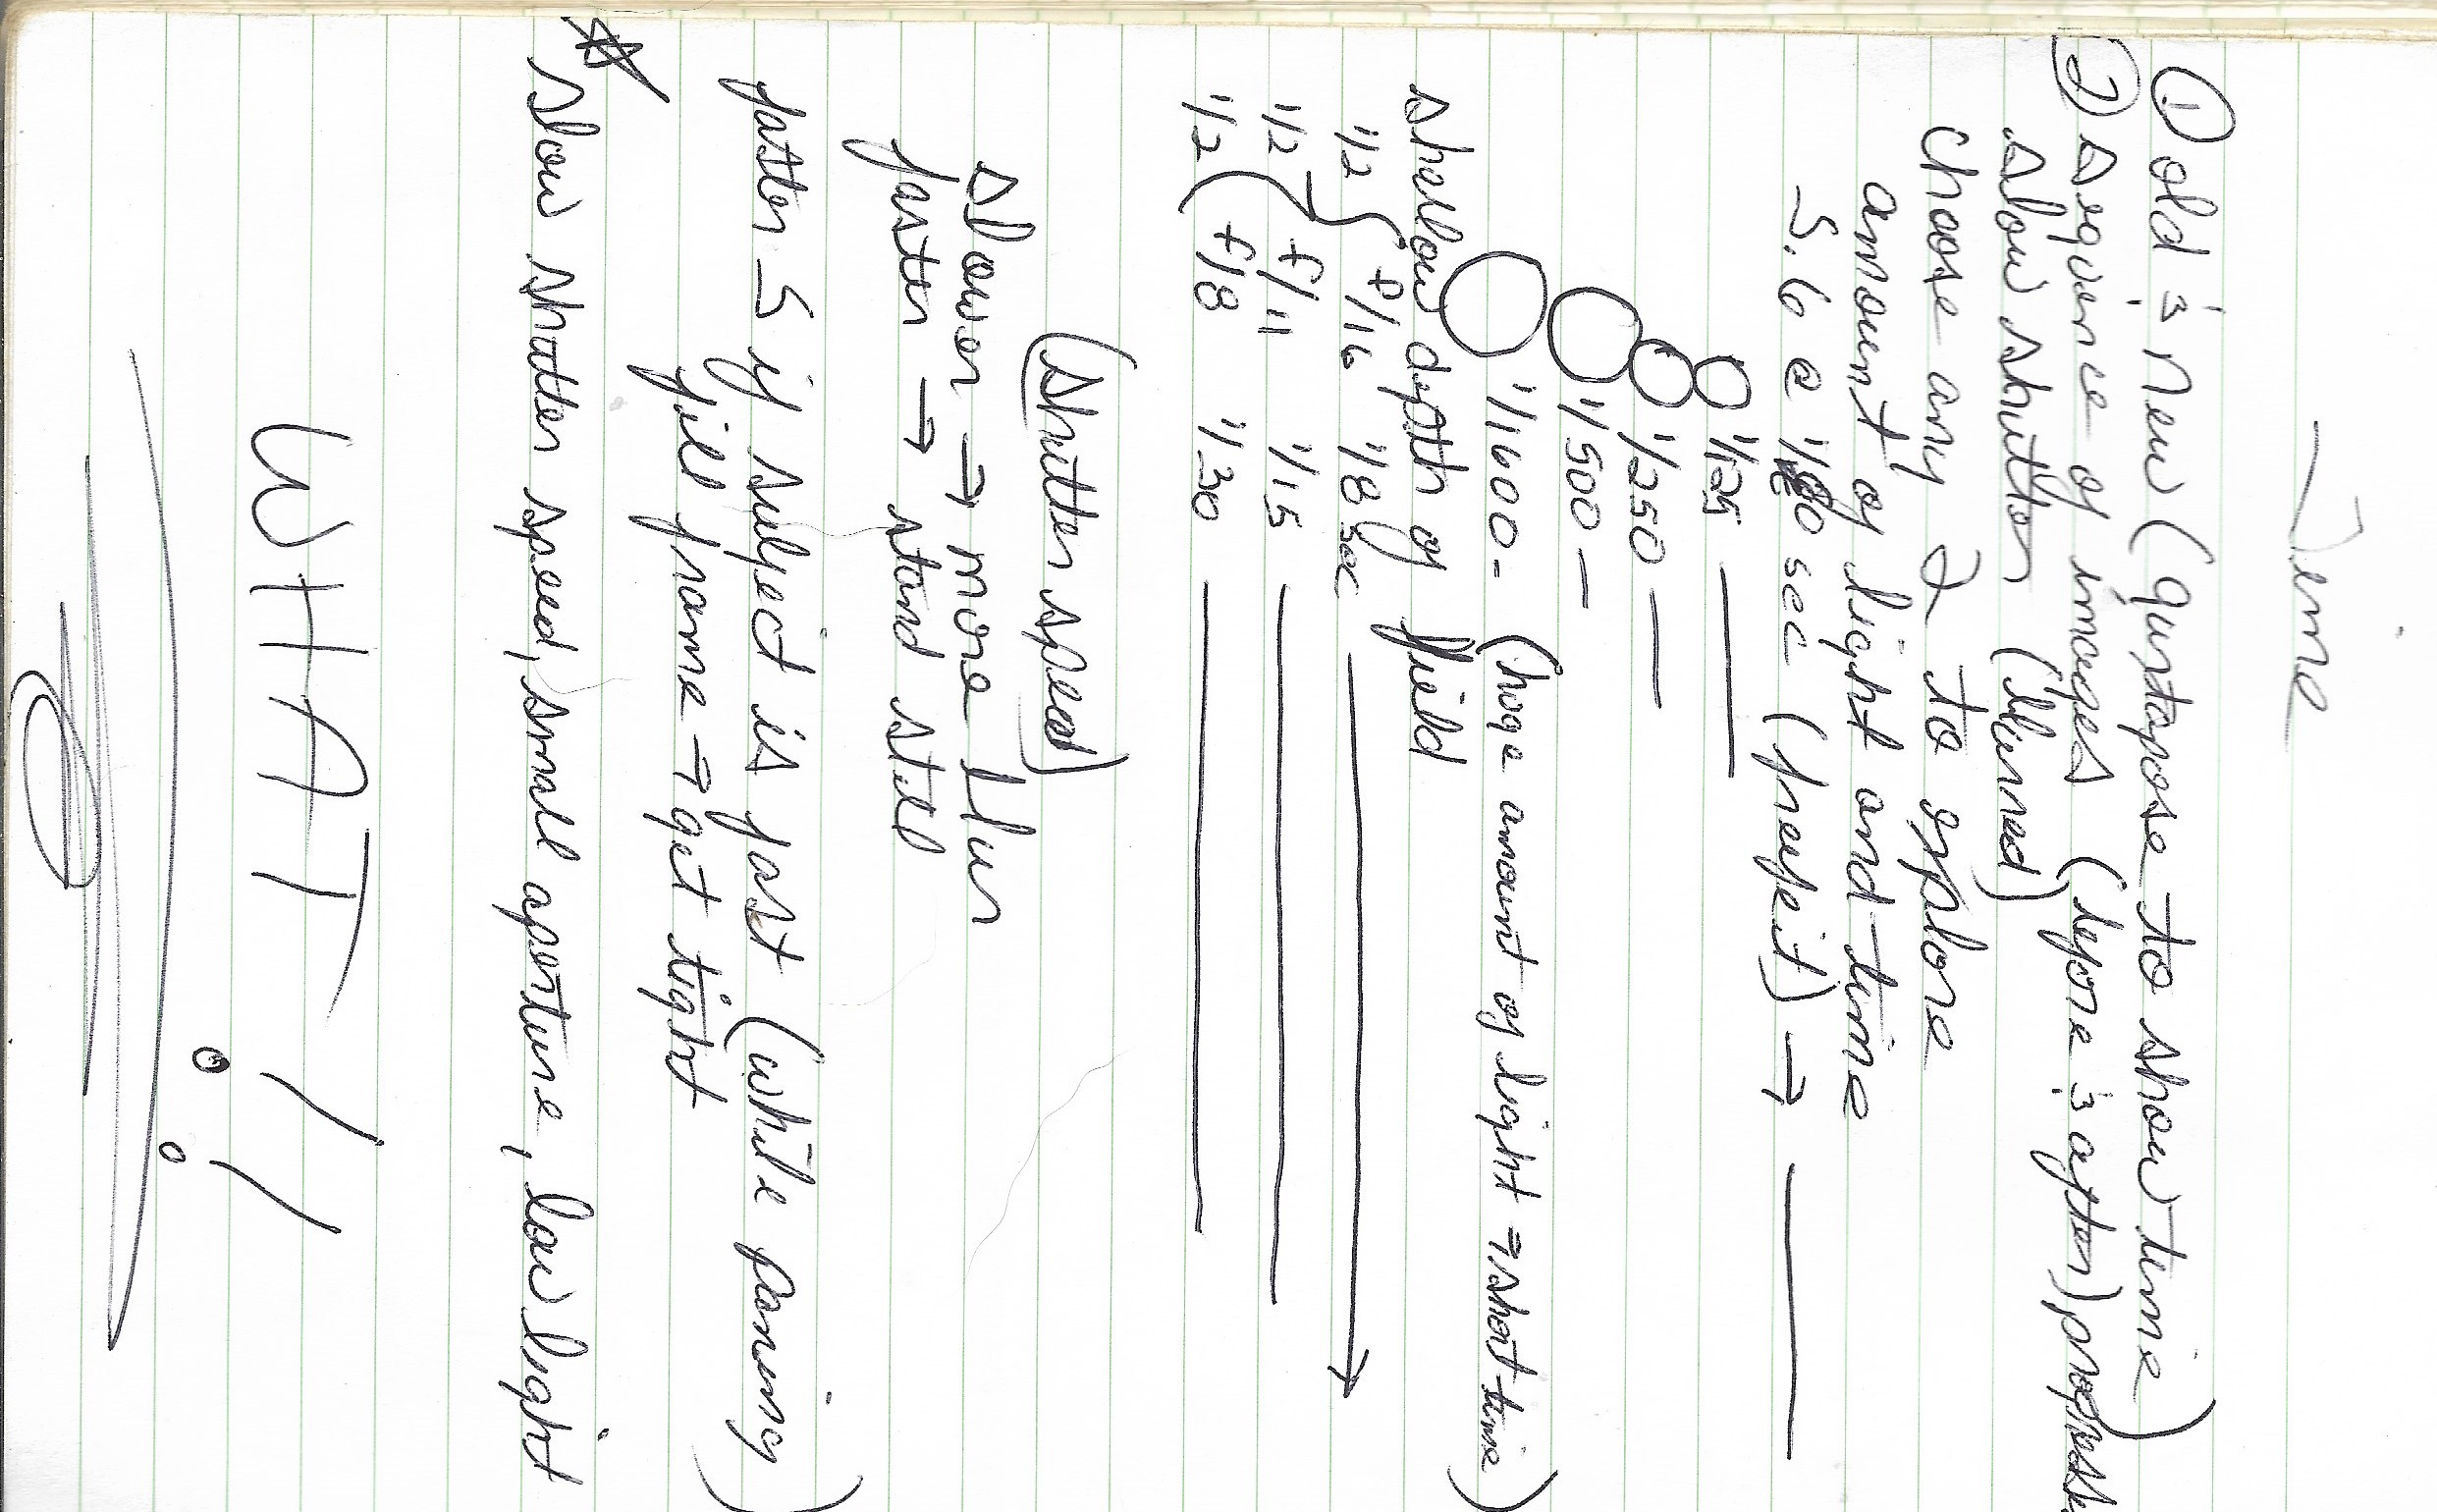 Time
① old & new (juxtapose to show time)
② sequence of images (before & after) progress
slow shutter (blurred)
choose any 2 to explore
amount of light and time
5.6 @ 1/60 sec (freeze it) →
1/125
1/250
1/500
1/1600 - (huge amount of light → short time)
shallow depth of field
1/2 f/16 1/8 sec
1/2 f/11 1/15
1/2 f/8 1/30
(shutter speed)
slower → more blur
faster → stand still
faster S if subject is fast (while panning)
fill frame → get tight
slow shutter speed, small aperture, low light
WHAT!!